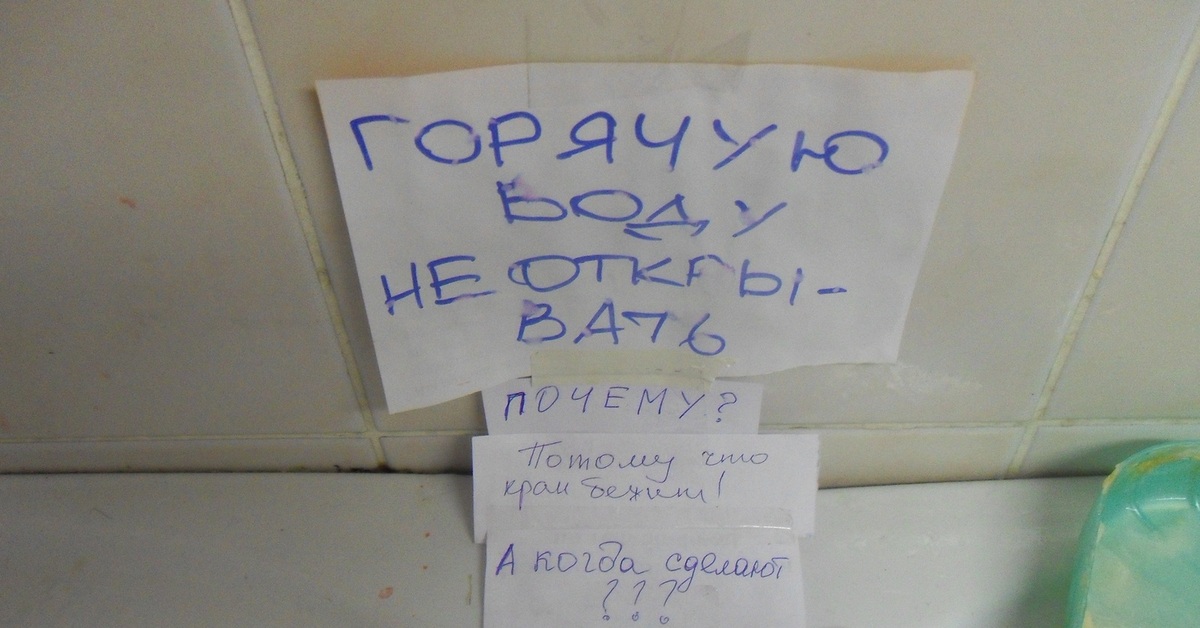 ГОРЯЧУЮ
ВОДУ
НЕ ОТКРЫ-
ВАТЬ
ПОЧЕМУ?
Потому что
кран бежит!
А когда сделают
???